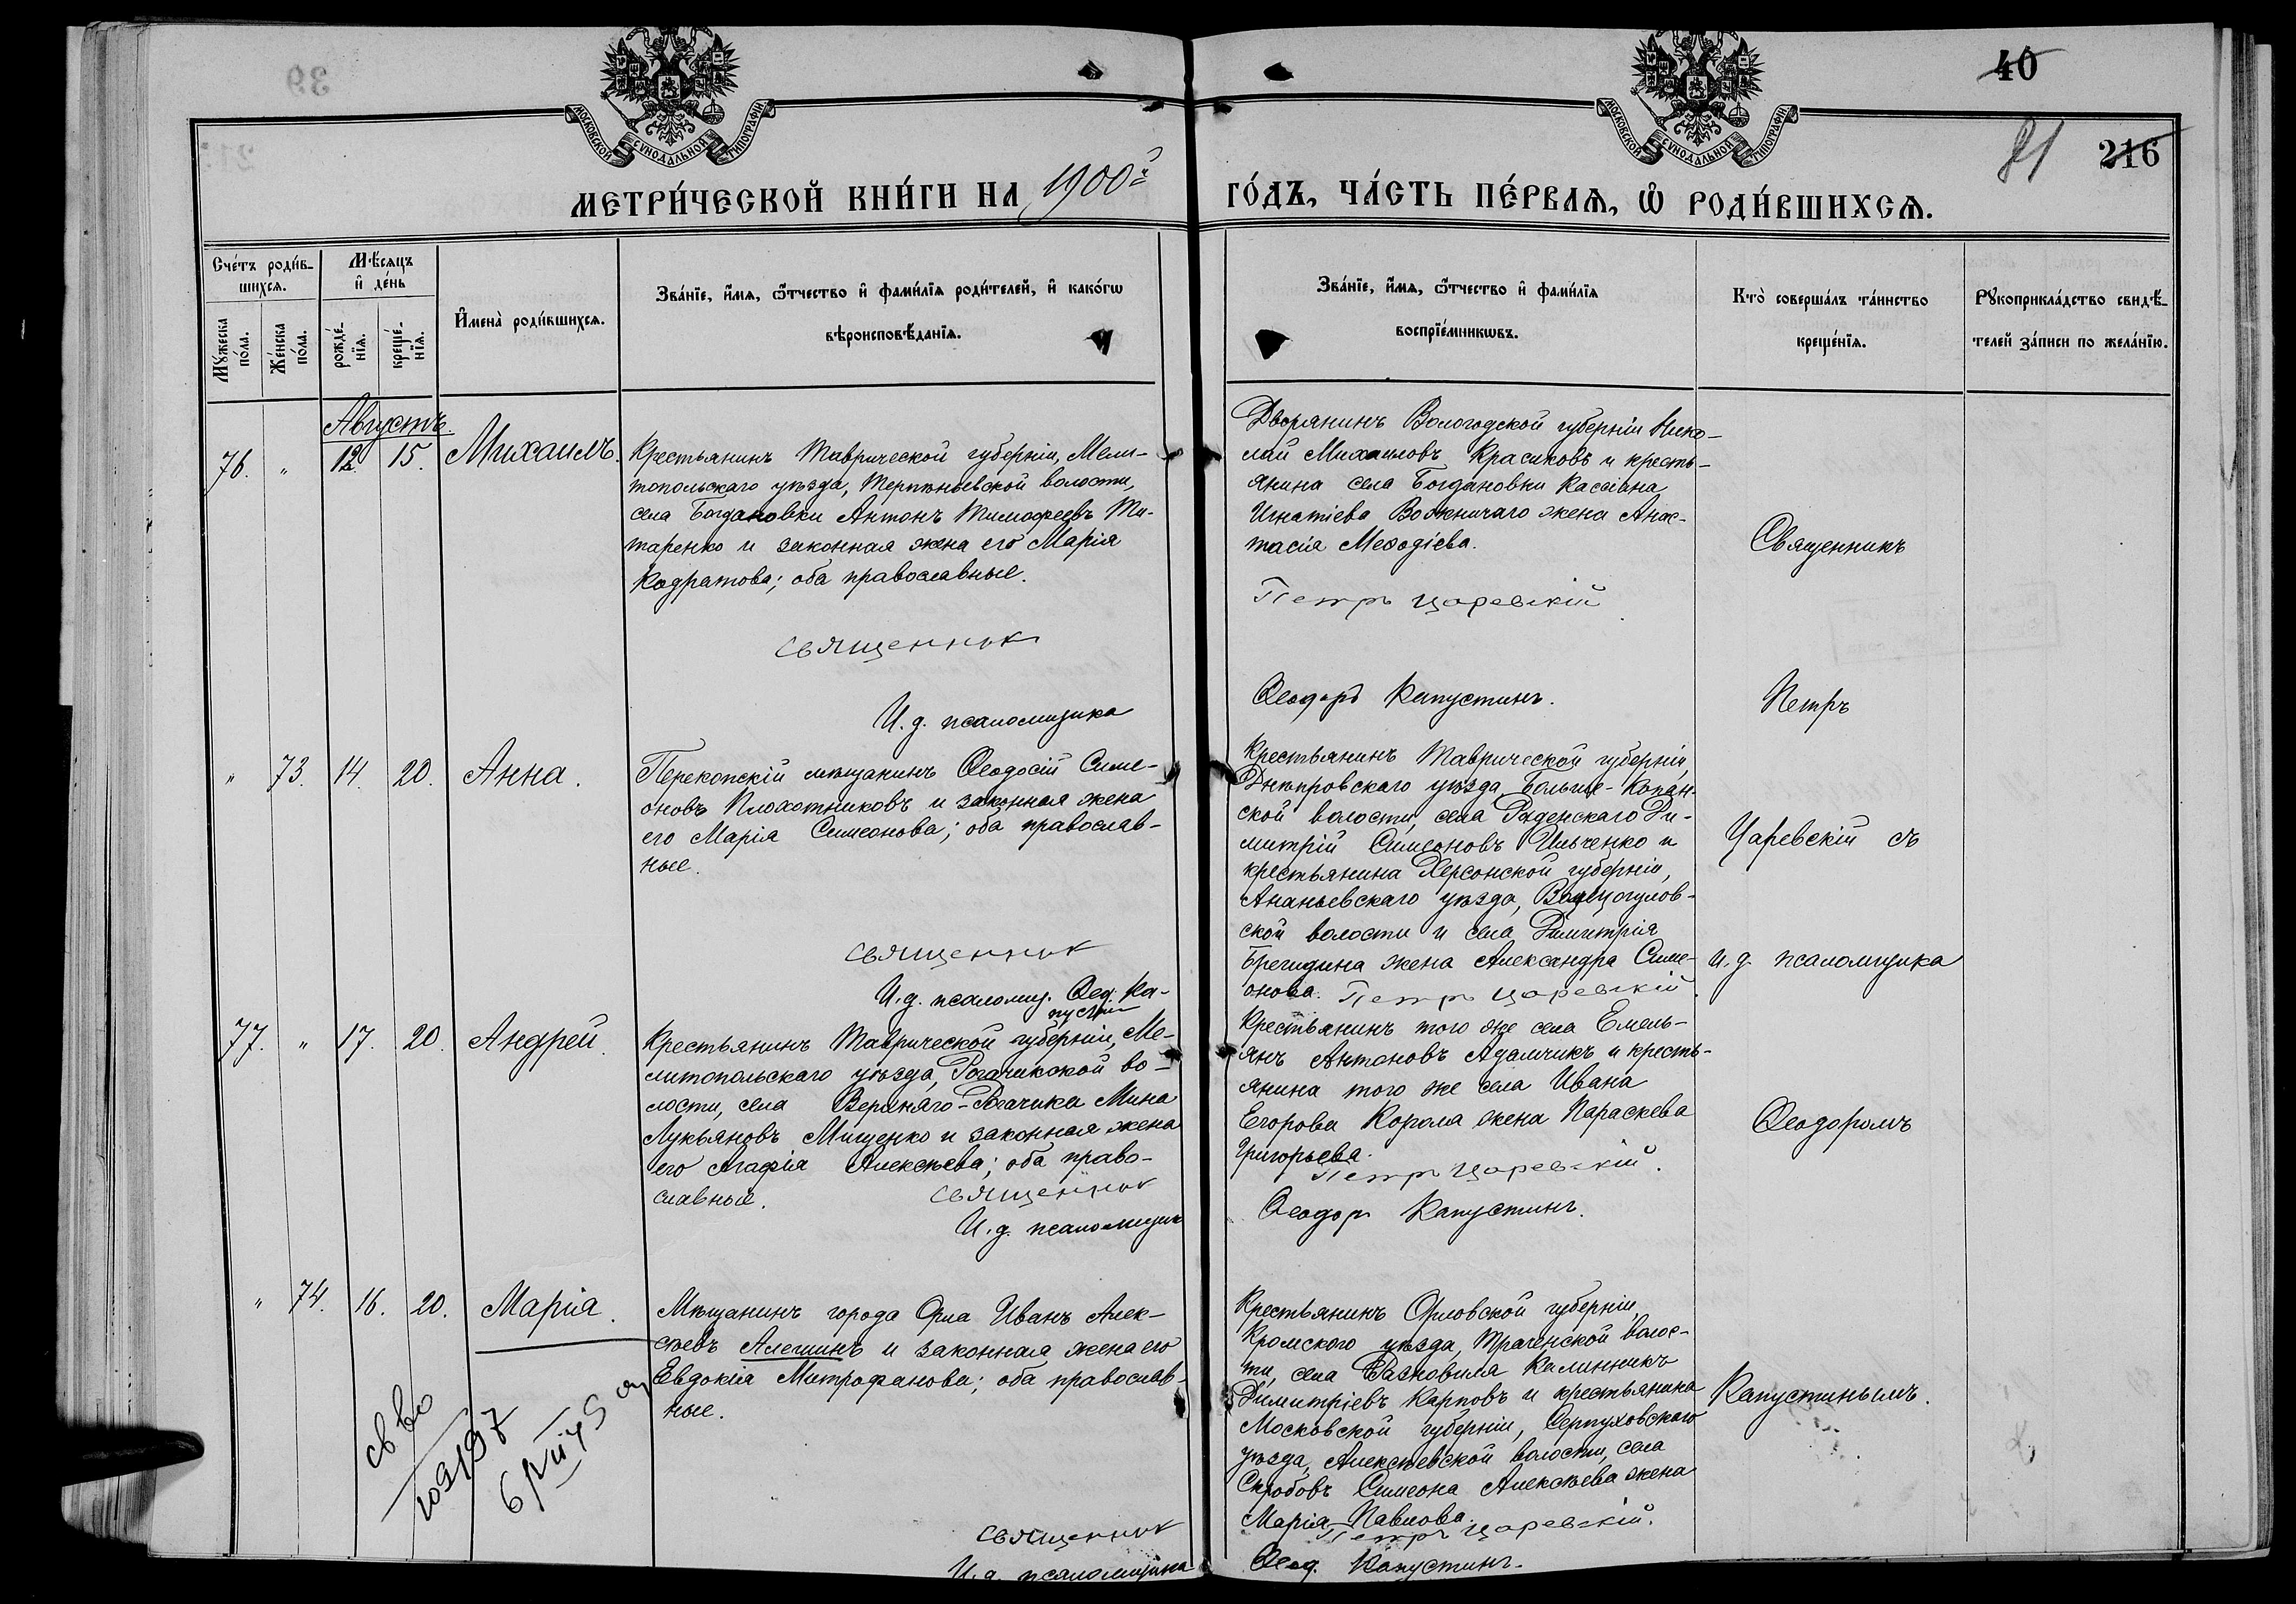 40
81 216
МОСКОВСКОЙ СѴНОДАЛЬНОЙ ТИПОГРАФІИ
МОСКОВСКОЙ СѴНОДАЛЬНОЙ ТИПОГРАФІИ
МЕТРИ́ЧЕСКОЙ КНИ́ГИ НА 1900й ГО́ДЪ, ЧА́СТЬ ПЕ́РВАѦ, Ѡ҆ РОДИ́ВШИХСѦ.
Сче́тъ роди́в-
шихсѧ.
Мꙋ́жеска по́ла.
Же́нска по́ла.
Мѣ́сѧцъ и҆ де́нь
рожде́-нїѧ.
креще́-нїѧ.
И҆мена̀ роди́вшихсѧ.
Зва́нїе, и҆́мѧ, ѻ҆́тчество и҆ фами́лїѧ роди́телей, и҆ како́гѡ
вѣроисповѣ́данїѧ.
Зва́нїе, и҆́мѧ, ѻ҆́тчество и҆ фами́лїѧ
воспрїе́мникѡвъ.
Кто̀ соверша́лъ та́инство
креще́нїѧ.
Рꙋкоприкла́дство свидѣ́-
телей за́писи по жела́нїю.
Августъ.
76. " 12. 15. Михаилъ.
Крестьянинъ Таврической губерніи, Мели-
топольскаго уѣзда, Терпѣньевской волости,
села Богдановки Антонъ Тимофеевъ Ти-
таренко и законная жена его Марія
Кодратова; оба православные.
Священник
И. д. псаломщика
Дворянинъ Вологодской губерніи Нико-
лай Михаиловъ Красиковъ и кресть-
янина села Богдановки Кассіана
Игнатіева жена Анас-
тасія Меѳодіева.
Петръ Царевскій
Ѳеодоръ Капустинъ.
" 73. 14. 20. Анна.
Перекопскій мѣщанинъ Ѳеодосій Симе-
оновъ Плохотниковъ и законная жена
его Марія Симеонова; оба православ-
ные.
Священник
И. д. псаломщ. Ѳед. Ка-
пустин
Крестьянинъ Таврической губерніи,
Днѣпровскаго уѣзда, Больше-Копан-
ской волости, села Раденскаго Ди-
митрій Симеоновъ Ильченко и
крестьянина Херсонской губерніи,
Ананьевскаго уѣзда,
ской волости и села Димитрія
жена Александра Симе-
онова. Петръ Царевскій.
77. " 17. 20. Андрей.
Крестьянинъ Таврической губерніи, Ме-
литопольскаго уѣзда, Рогачикской во-
лости, села Верхняго-Рогачика Мина
Лукьяновъ Мищенко и законная жена
его Агафія Алексѣева; оба право-
славные. Священник
И. д. псаломщик
Крестьянинъ того же села Емель-
янъ Антоновъ Адамчикъ и кресть-
янина того же села Ивана
Егорова Короля жена Параскева
Григорьева.
Петръ Царевскій.
Ѳеодоръ Капустинъ.
" 74. 16. 20. Марія.
Мѣщанинъ города Орла Иванъ Алек-
сѣевъ Алешинъ и законная жена его
Евдокія Митрофанова; оба православ-
ные.
Священник
И. д. псаломщика
Крестьянинъ Орловской губерніи,
Кромского уѣзда, волос-
ти, села Калинникъ
Димитріевъ Карповъ и крестьянина
Московской губерніи, Серпуховского
уѣзда, Алексѣевской волости, села
Скробовъ Симеона Алексѣева жена
Марія Павлова.
Петръ Царевскій.
Ѳеод. Капустинъ.
Священникъ
Петръ
Царевскій съ
и. д. псаломщика
Ѳеодоромъ
Капустинымъ.
св во